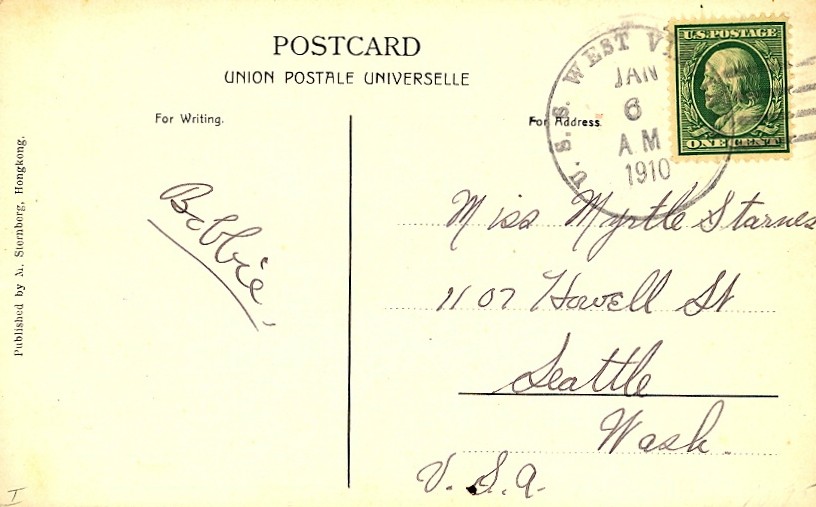 POSTCARD
UNION POSTALE UNIVERSELLE
For Writing.
For Address.
U.S. POSTAGE
ONE CENT
U. S. S. WEST VI
JAN
6
A M
1910
Published by M. Sternborg, Hongkong.
Bobbie,
Miss Myrtle Starnes
1107 Howell St
Seattle
Wash.
U. S. A.
I